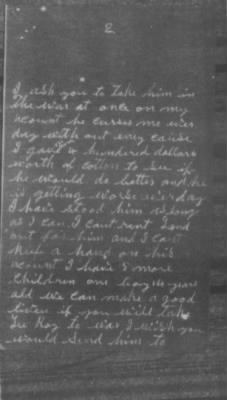 2
I ask you to take him in
the war at once on my
acount he curses me ever
day with out eny cause
I gave a hundred dollars
worth of cotton to see if
he would do better and he
is getting worse ever day
I have stood him as long
as I can I cant rent Land
out for him and I cant
keep a hand on his
acount I have 5 more
children one boy 14 years
old we can make a good
liven if you will take
Lee Roy to war I wish you
would send him to